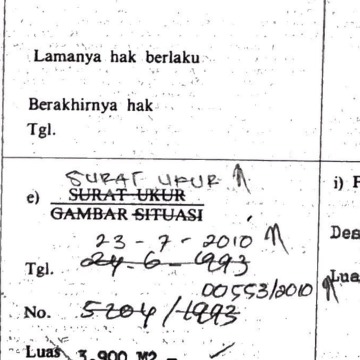 Lamanya hak berlaku
Berakhirnya hak
Tgl.
SURAT UKUR
e) SURAT UKUR
GAMBAR SITUASI
23-7-2010
Tgl. 24-6-1993
00553/2010
No. 5204/1993
Luas 3.900 M2 -
i) F
Des
Lua